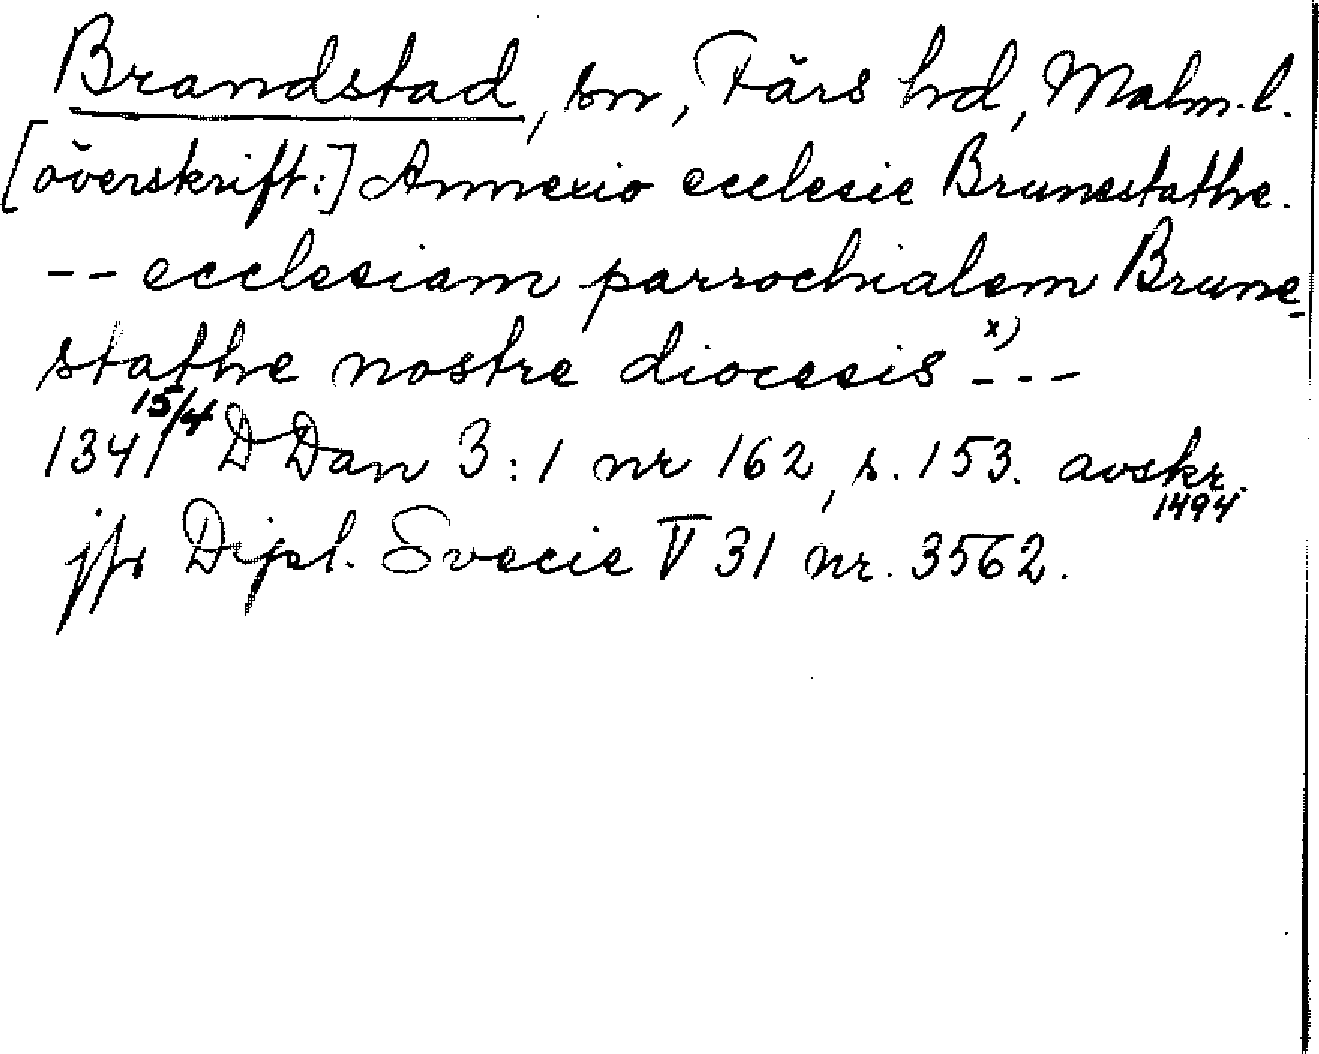 Brandstad, sn, Färs hd, Malm. l.
[överskrift:] Annexio ecclesie Brunestathe.
-- ecclesiam parrochialem Brune-
stathe nostre diocesis x) ---
1341 15/4 DDan 3:1 nr 162, s. 153. avskr. 1494
jfr Dipl. Svecie V 31 nr. 3562.